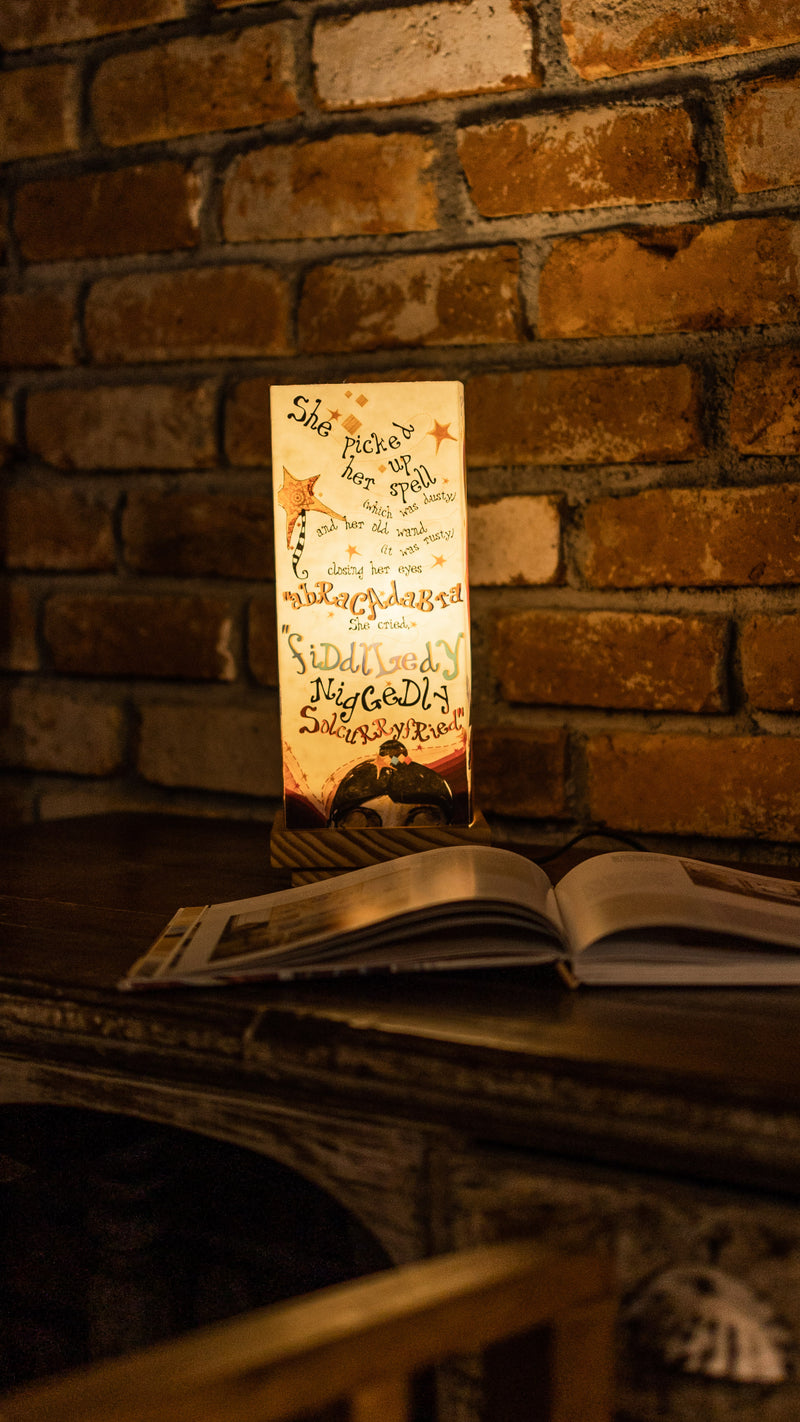 She picked
up
her spell
(which was dusty)
and her old wand
(it was rusty)
closing her eyes
"abRaCAdaBRa
She cried,
"fiDdlLedy
NigGeDly
SolcuRRyfRied"